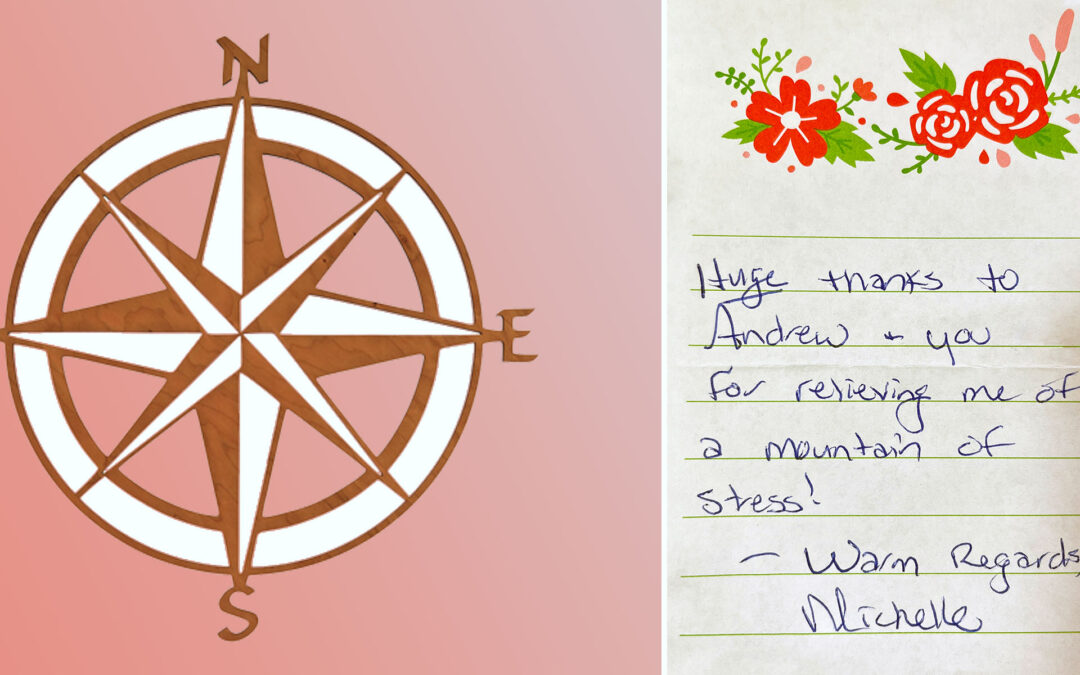 N
E
S
Huge thanks to
Andrew + you
for relieving me of
a mountain of
stress!
- Warm Regards,
Michelle